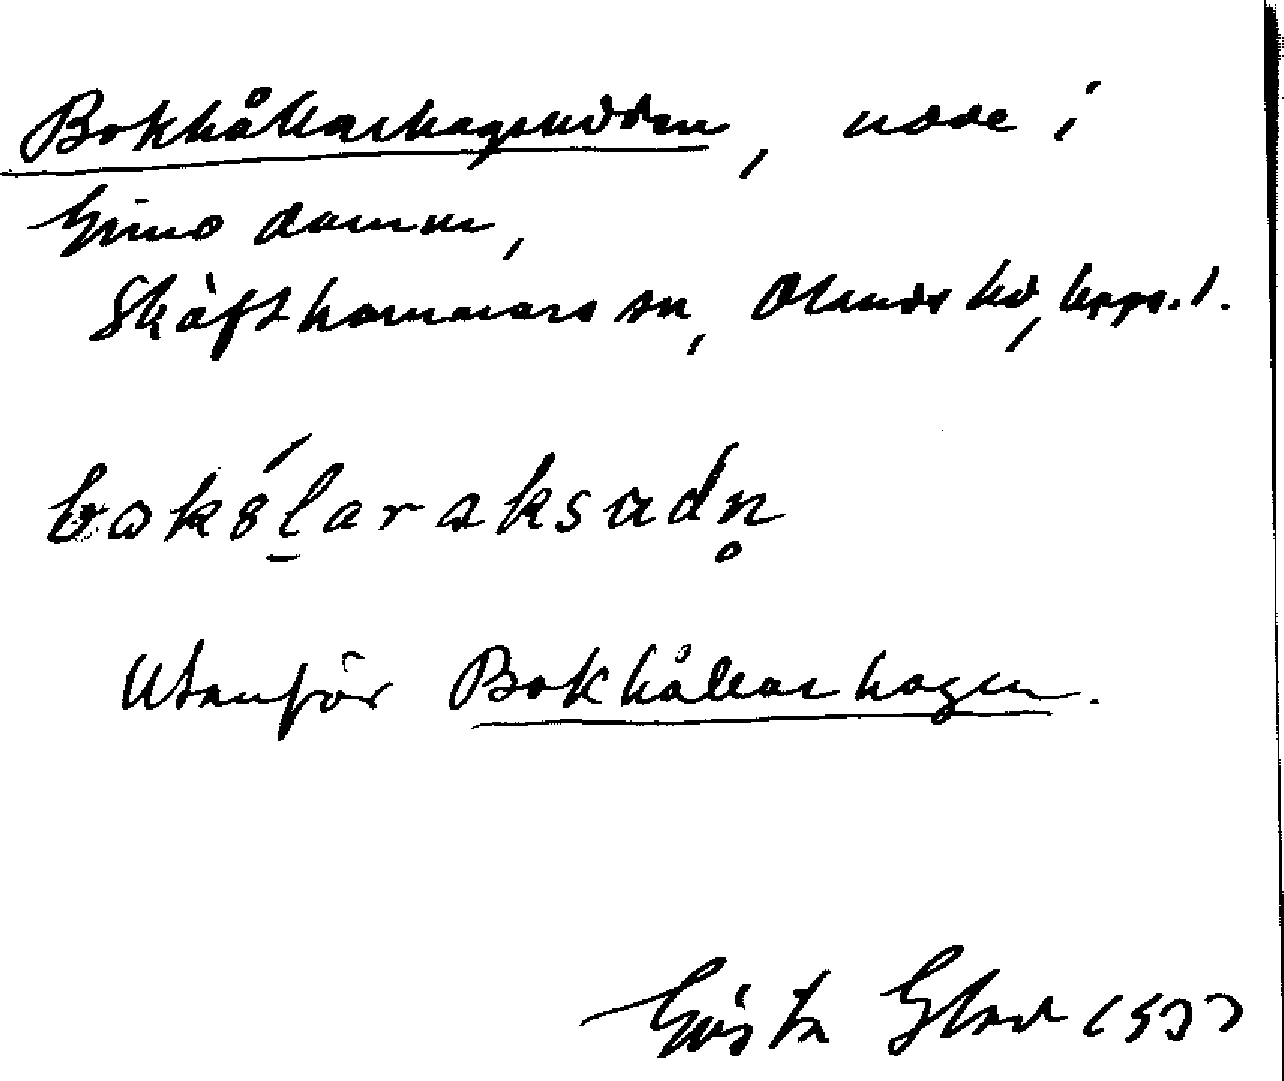 Bokhållarhagsudden, udde i
Gimo damm,
Skäfthammars sn, Olands hd, Upps. l.
bokslaraksudn̥
Utanför Bokhållarhagen.
Gösta Glad 1933